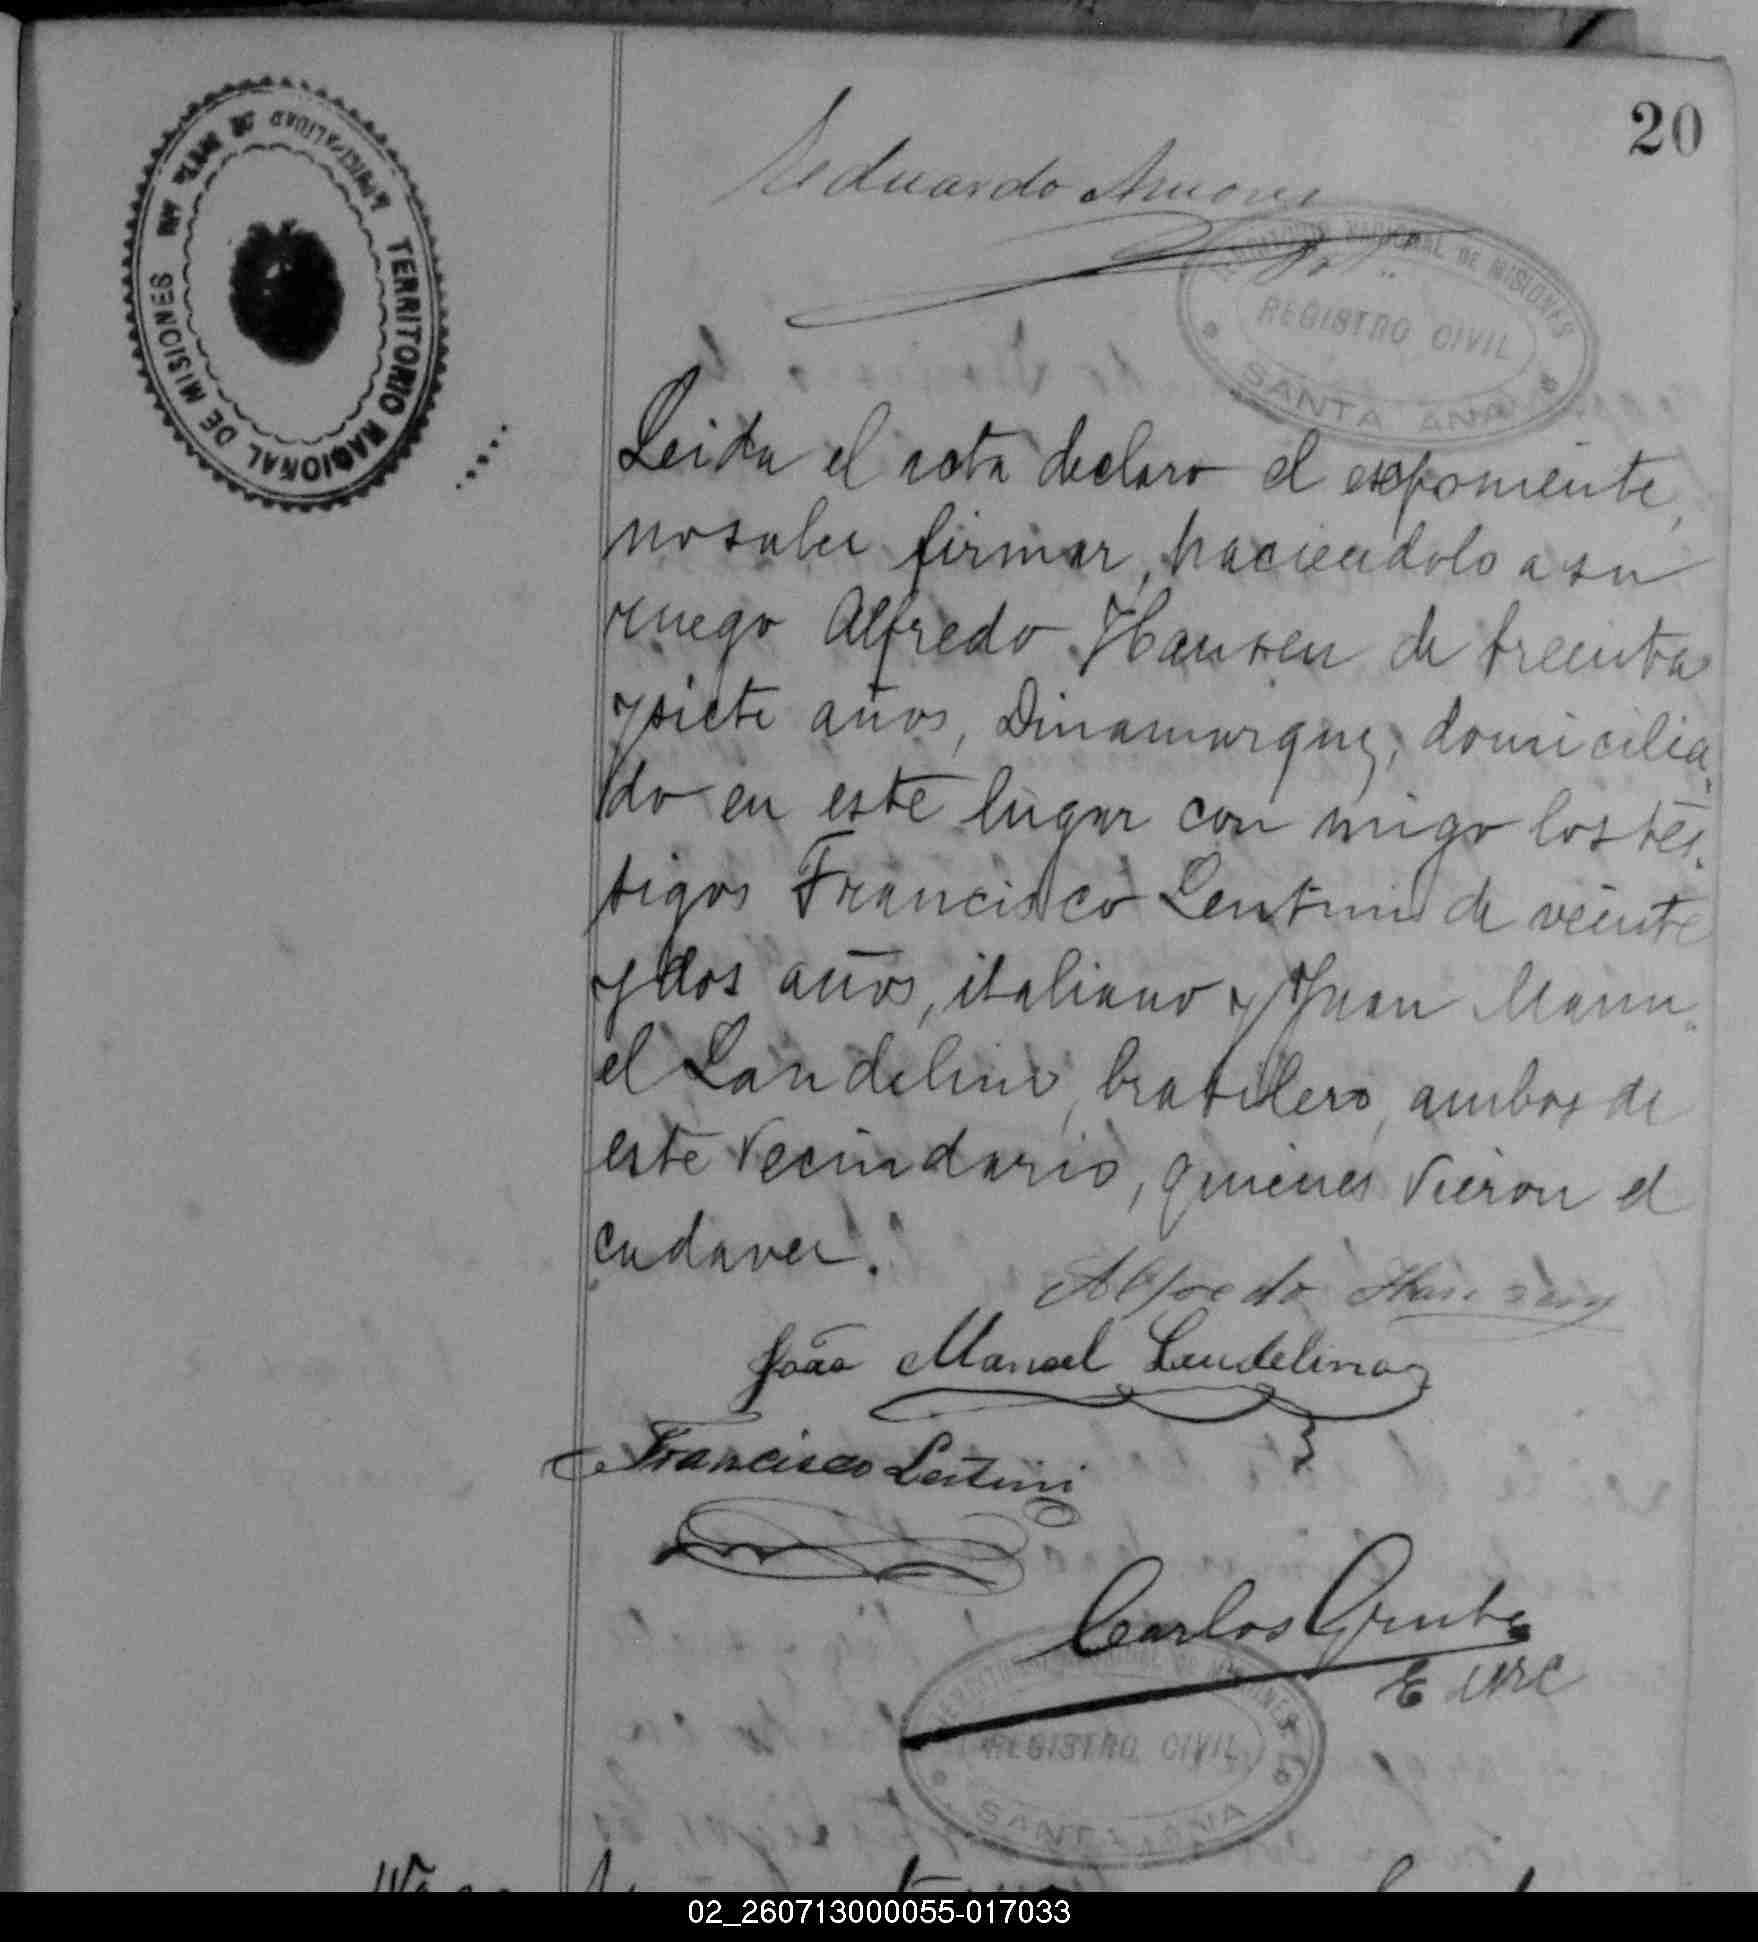 20
TERRITORIO NACIONAL DE MISIONES
MUNICIPALIDAD DE SANTA ANA
Eduardo
TERRITORIO NACIONAL DE MISIONES
REGISTRO CIVIL
SANTA ANA
Leida el acta declaro el exponiente,
no saber firmar, haciendolo a su
ruego Alfredo Hansen de treinta
y siete años, Dinamarques, domicilia
do en este lugar con migo los tes-
tigos Francisco Lentini de veinte
y dos años, italiano y Juan Manu-
el Landelino, brasilero, ambos de
este vecindario, quienes vieron el
cadaver.
Alfredo Hansen
João Manoel Landelino
Francisco Lentini
Carlos
TERRITORIO NACIONAL DE MISIONES
REGISTRO CIVIL
SANTA ANA
02_260713000055-017033